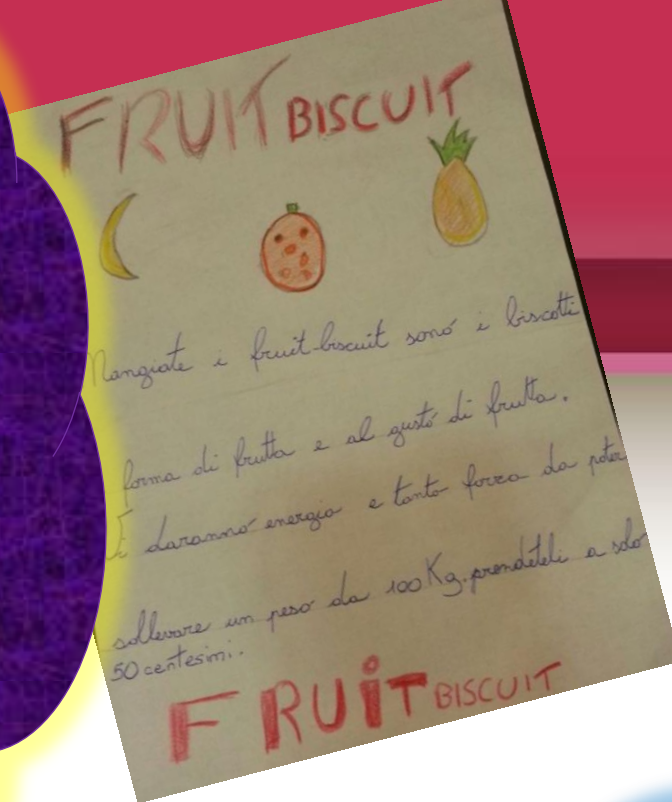 FRUIT BISCUIT
Mangiate i fruit-biscuit sono i biscotti
forma di frutta e al gusto di frutta.
daranno energia e tanto forza da poter
sollevare un peso da 100 Kg. prendeteli a solo
50 centesimi.
FRUIT BISCUIT